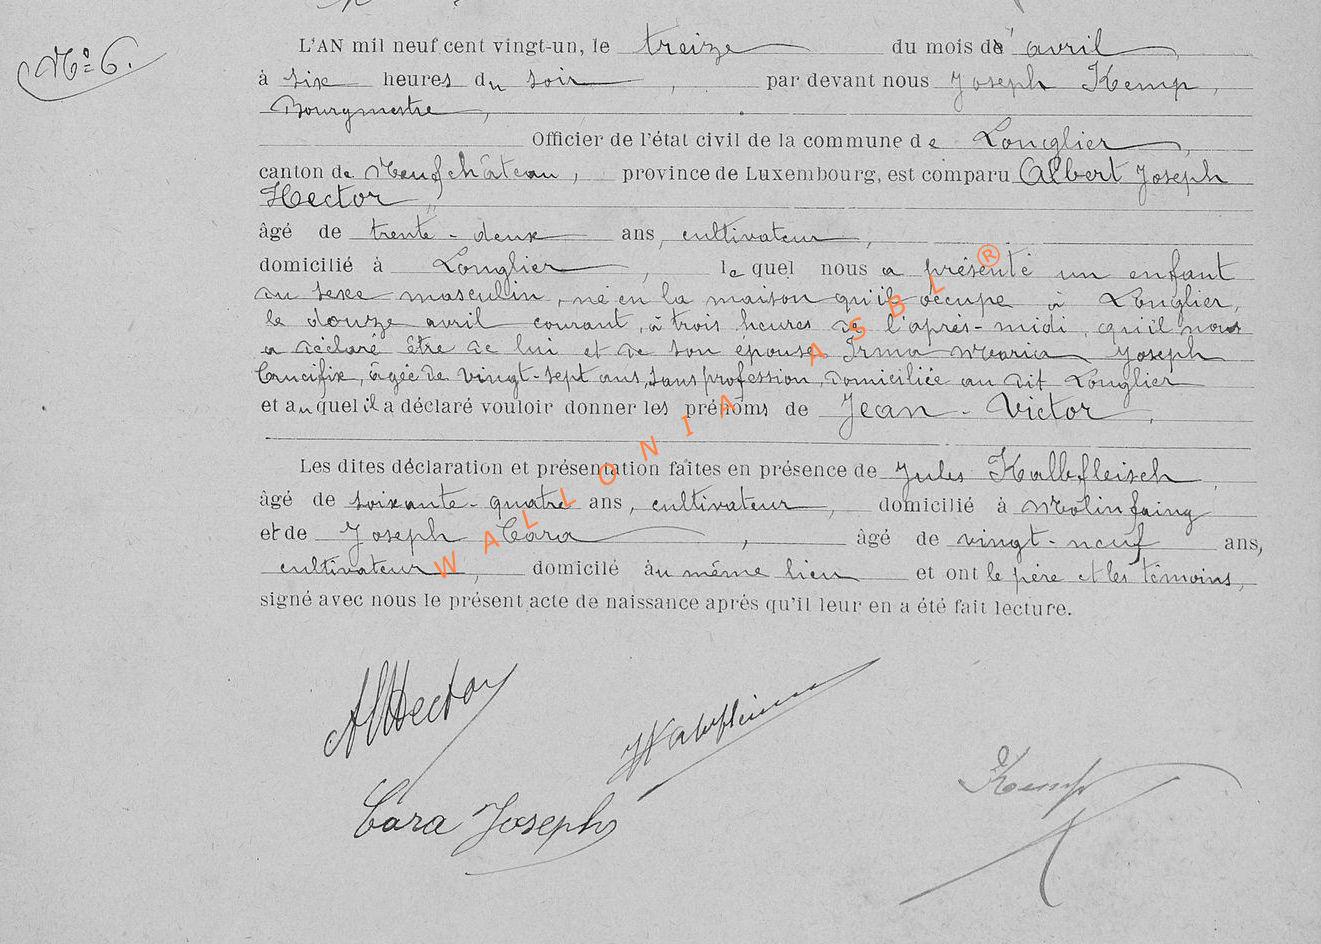 N° 6.
L'AN mil neuf cent vingt-un, le treize du mois d' avril,
à six heures du soir, par devant nous Joseph Kemp,
Bourgmestre,
Officier de l'état civil de la commune de Longlier,
canton de Neufchâteau, province de Luxembourg, est comparu Albert Joseph
Hector,
âgé de trente-deux ans, cultivateur,
domicilié à Longlier, lequel nous a présenté un enfant
du sexe masculin, né en la maison qu'il occupe à Longlier,
le douze avril courant, à trois heures de l'après-midi, qu'il nous
a déclaré être de lui et de son épouse Irma Maria Joseph
Crucifix, âgée de vingt-sept ans, sans profession, domiciliée au dit Longlier
et auquel il a déclaré vouloir donner les prénoms de Jean-Victor.
Les dites déclaration et présentation faites en présence de Jules Kalbfleisch,
âgé de soixante-quatre ans, cultivateur, domicilié à Molinfaing
et de Joseph Cara, âgé de vingt-neuf ans,
cultivateur, domicilé au même lieu et ont le père et les témoins,
signé avec nous le présent acte de naissance après qu'il leur en a été fait lecture.
WALLONIA ASBL ®
Al Hector
Cara Joseph
Kemp